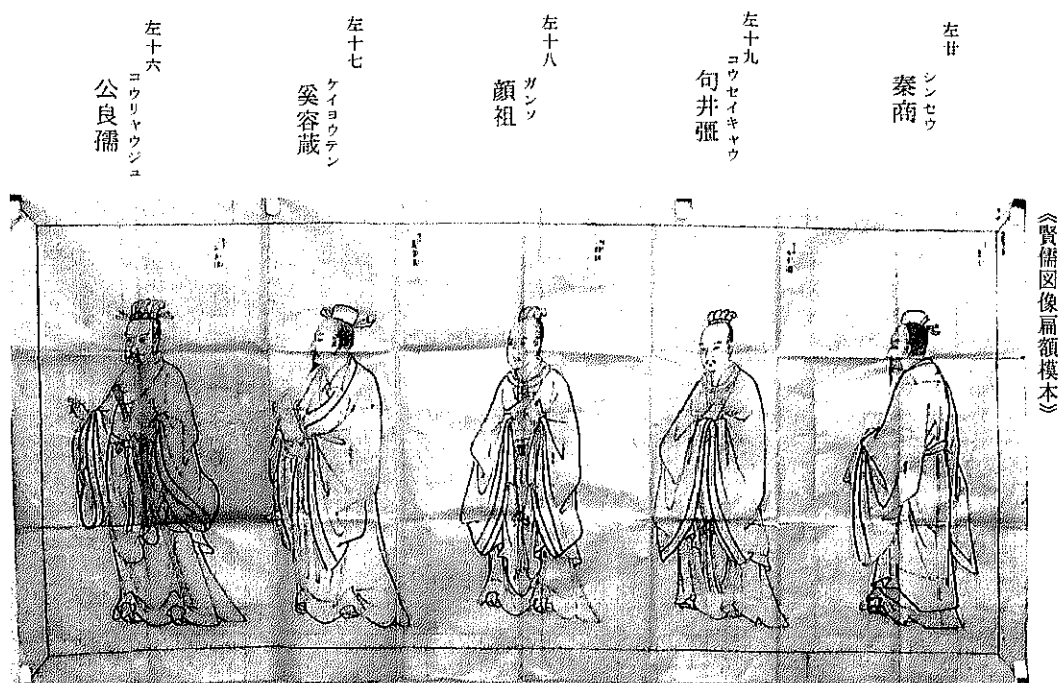 《賢儒図像扁額模本》
左廿
シンセウ
秦商
左十九
コウセイキャウ
句井彊
左十八
ガンソ
顔祖
左十七
ケイヨウテン
奚容蔵
左十六
コウリャウジュ
公良孺